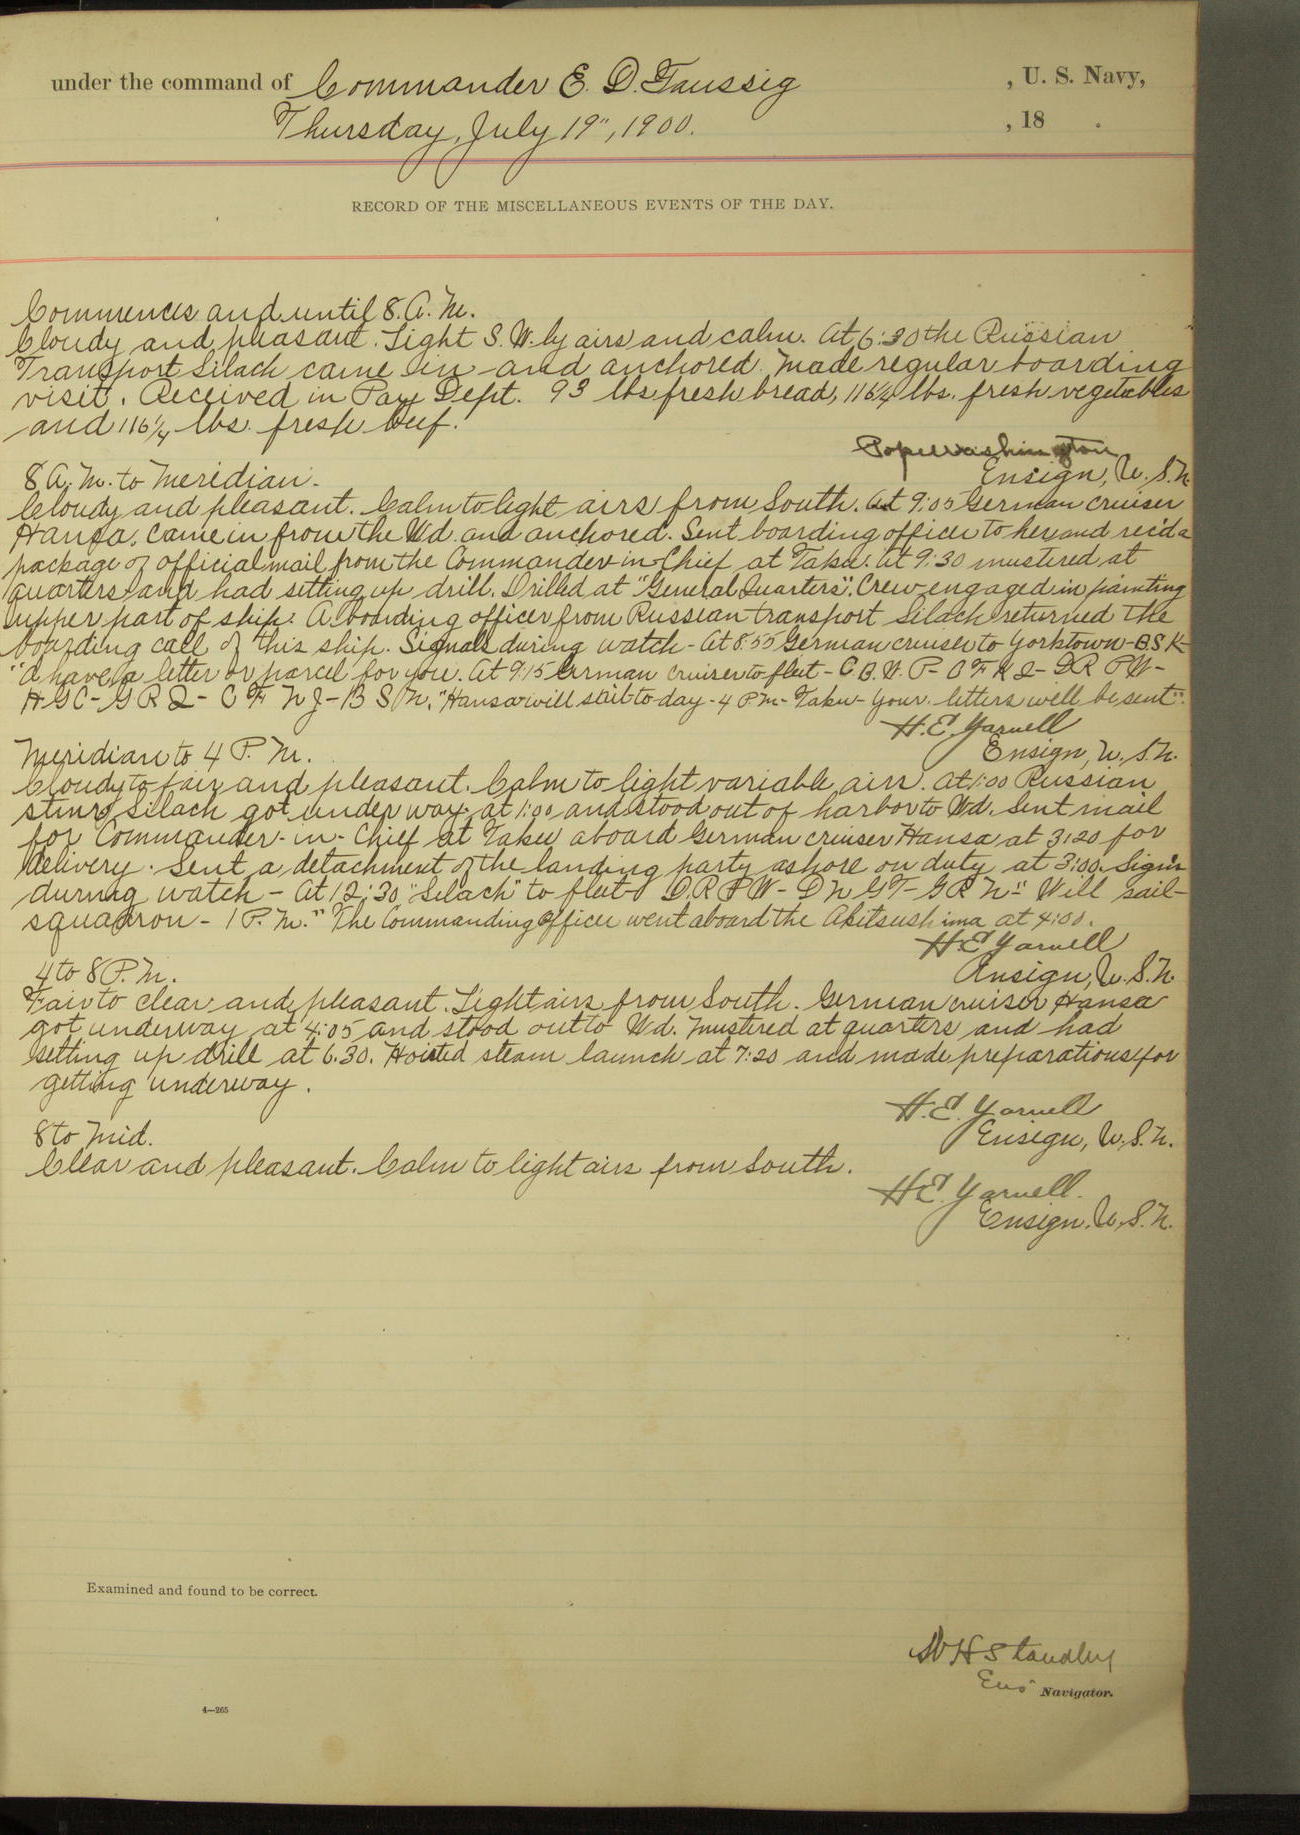 under the command of Commander E. D. Taussig , U. S. Navy,
Thursday, July 19", 1900. , 18 .
RECORD OF THE MISCELLANEOUS EVENTS OF THE DAY.
Commences and until 8. A. M.
Cloudy and pleasant. Light S. W. ly airs and calm. At 6:30 the Russian
Transport Silach came in and anchored. Made regular boarding
visit. Received in Pay Dept. 93 lbs fresh bread, 116¼ lbs. fresh vegetables
and 116¼ lbs. fresh beef.
Pope Washington
Ensign, U. S. N.
8 A. M. to Meridian.
Cloudy and pleasant. Calm to light airs from South. At 9:05 German cruiser
Hansa, came in from the Wd. and anchored. Sent boarding officer to her and rec'd a
package of official mail from the Commander in Chief at Taku. At 9:30 mustered at
quarters and had setting up drill. Drilled at "General Quarters". Crew engaged in painting
upper part of ship. A boarding officer from Russian transport Silach returned the
boarding call of this ship. Signals during watch - At 8:55 German cruiser to Yorktown - B.S.K-
"I have a letter or parcel for you. At 9:15 German cruiser to fleet - C. B. W. P - O F K Q - G R P W -
H G C - G R Q - C F N J - B S N. "Hansa will sail to day - 4 P M - Taku - Your letters will be sent".
H. E. Yarnell
Ensign, U. S. N.
Meridian to 4 P. M.
Cloudy to fair and pleasant. Calm to light variable airs. At 1:00 Russian
stmr, Silach got under way at 1:00 and stood out of harbor to Wd. Sent mail
for Commander-in-Chief at Taku aboard German cruiser Hansa at 3:20 for
delivery. Sent a detachment of the landing party ashore on duty at 3:00. Signs
during watch - At 12:30 "Silach" to fleet - D. R P W - D N G T - G R N - " Will sail -
squadron - 1 P. M." The Commanding Officer went aboard the Akitsushima at 4:00.
H. E. Yarnell
Ensign, U. S. N.
4 to 8 P. M.
Fair to clear and pleasant. Light airs from South. German cruiser Hansa
got underway at 4:05 and stood out to Wd. Mustered at quarters and had
setting up drill at 6.30. Hoisted steam launch at 7:20 and made preparations for
getting underway.
H. E. Yarnell
Ensign, U. S. N.
8 to Mid.
Clear and pleasant. Calm to light airs from South.
H. E. Yarnell.
Ensign, U. S. N.
Examined and found to be correct.
W H Standley
Ens Navigator.
4—265